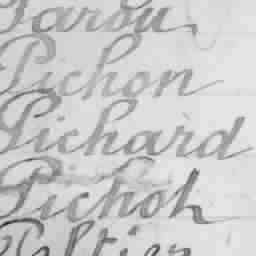 Parou
Pichon
Pichard
Pichot
Peltier